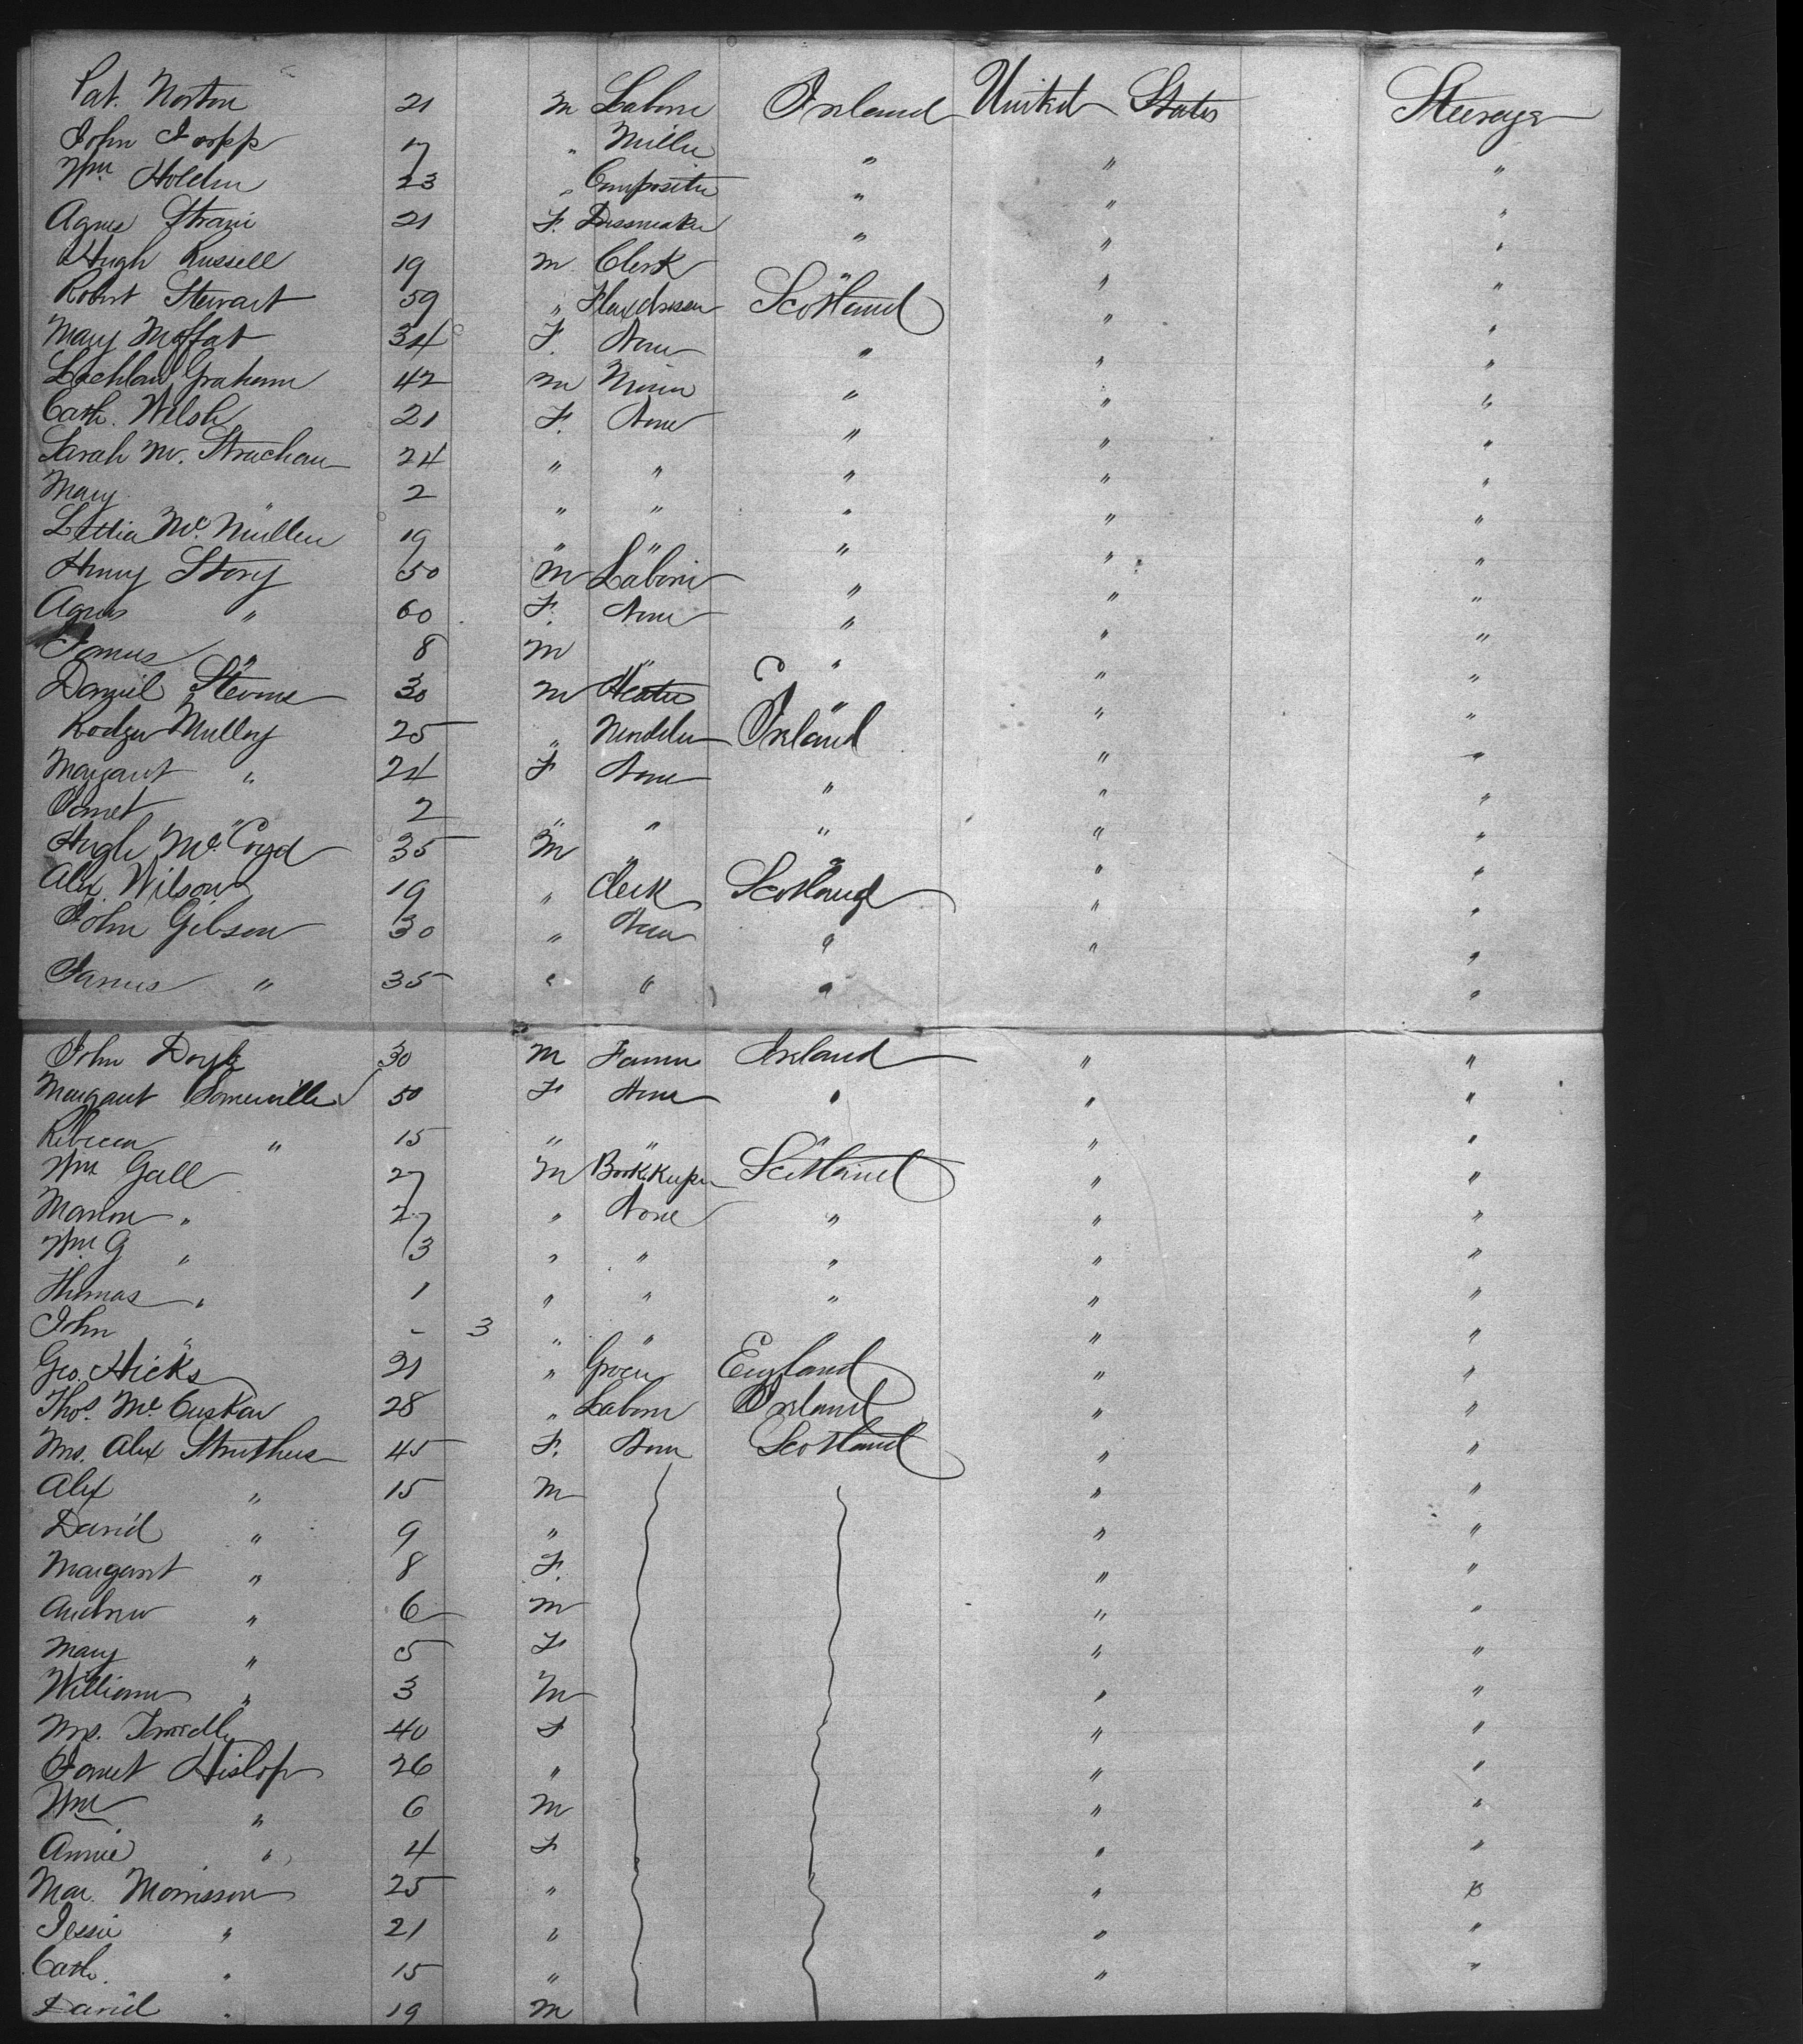 Pat. Norton 21 M Laborer Ireland United States Steerage
John 17 " Miller " " "
Wm Holden 23 " Compositor " " "
Agnes 21 F. Dressmaker " " "
Hugh Russell 19 M Clerk " " "
Robert Stewart 59 " Flaxdresser Scotland " "
Mary Moffat 34 F. None " " "
Lachlan Graham 42 M Miner " " "
Cath. Welsh 21 F. None " " "
Sarah M. Strachan 24 " " " " "
Mary " 2 " " " " "
Lettia McMullen 19 " " " " "
Henry Story 50 M Laborer " " "
Agnes " 60 F. None " " "
James " 8 M " " " "
Daniel Stevens 30 M Heater " " "
Rodger Mulloy 25 " Ireland " "
Margaret " 24 F None " " "
Janet " 2 " " " " "
Hugh Mc 35 M " " " "
Alex Wilson 19 " Clerk Scotland " "
John Gibson 30 " None " " "
James " 35 " " " "
John Doyle 30 M Farmer Ireland " "
Margaret Somerville 50 F None " " "
Rebecca " 15 " " " " "
Wm Gall 27 M Bookkeeper Scotland " "
Marion " 27 " None " " "
Wm G " 3 " " " " "
Thomas " 1 " " " " "
John " - 3 " " " "
Geo. Hicks 21 " Grocer England " "
Thos. McCuskar 28 " Laborer Ireland " "
Mrs. Alex Struthers 45 F. None Scotland " "
Alex " 15 M " "
David " 9 " " "
Margaret " 8 F. " "
Andrew " 6 M " "
Mary " 5 F " "
William " 3 M " "
Mrs. 40 F " "
Janet Hislop 26 " " "
Wm " 6 M " "
Annie " 4 F " "
Mar. Morrisson 25 " " "
Jessie " 21 " " "
Cath. " 15 " " "
David " 19 M